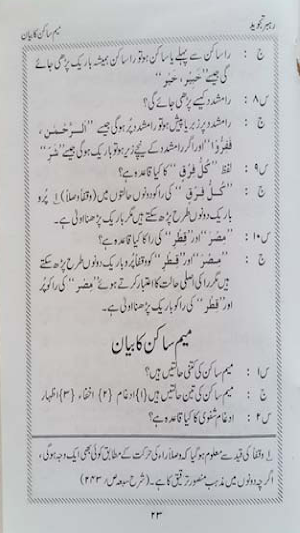 رہبر تجوید میم ساکن کا بیان
ج : را ساکن سے پہلے یا ساکن ہو تو را ساکن ہمیشہ باریک پڑھی جائے
گی جیسے ’’خَبِیْر، خَیْر‘‘
س۸ : را مشدد کیسے پڑھی جائے گی؟
ج : را مشدد پر زبر یا پیش ہو تو را مشدد پر ہو گی جیسے ’’اَلرَّحْمٰنُ،
فَفِرُّوْا‘‘ اور اگر را مشدد کے نیچے زیر ہو تو باریک ہو گی جیسے
س۹ : لفظ ’’کُلُّ فِرْقٍ‘‘ کا کیا قاعدہ ہے؟
ج : ’’کُلُّ فِرْقٍ‘‘ کی را کو دونوں حالتوں میں (وقفاً وصلاً) ۱؎ پُر و
باریک دونوں طرح پڑھ سکتے ہیں مگر باریک پڑھنا اولیٰ ہے۔
س۱۰ : ’’مِصْرَ‘‘ اور ’’قِطْرِ‘‘ کی را کا کیا قاعدہ ہے؟
ج : ’’مِصْرَ‘‘ اور ’’قِطْرِ‘‘ کو وقفاً پُر و باریک دونوں طرح پڑھ سکتے
ہیں مگر را کی اصلی حالت کا اعتبار کرتے ہوئے ’’مِصْرَ‘‘ کی را کو پُر
اور ’’قِطْرِ‘‘ کی را کو باریک پڑھنا اولیٰ ہے۔
میم ساکن کا بیان
س۱ : میم ساکن کی کتنی حالتیں ہیں؟
ج : میم ساکن کی تین حالتیں ہیں {۱} ادغام {۲} اخفاء {۳} اظہار
س۲ : ادغام شفوی کا کیا قاعدہ ہے؟
۱؎ وقفاً کی قید سے معلوم ہو گیا کہ وصلاً راء کی حرکت کے مطابق کوئی بھی ایک وجہ ہو گی،
اگرچہ دونوں میں مذہب منصور ترقیق کا ہے۔ (شرح سبعہ ص/۲۴۳)
۲۳